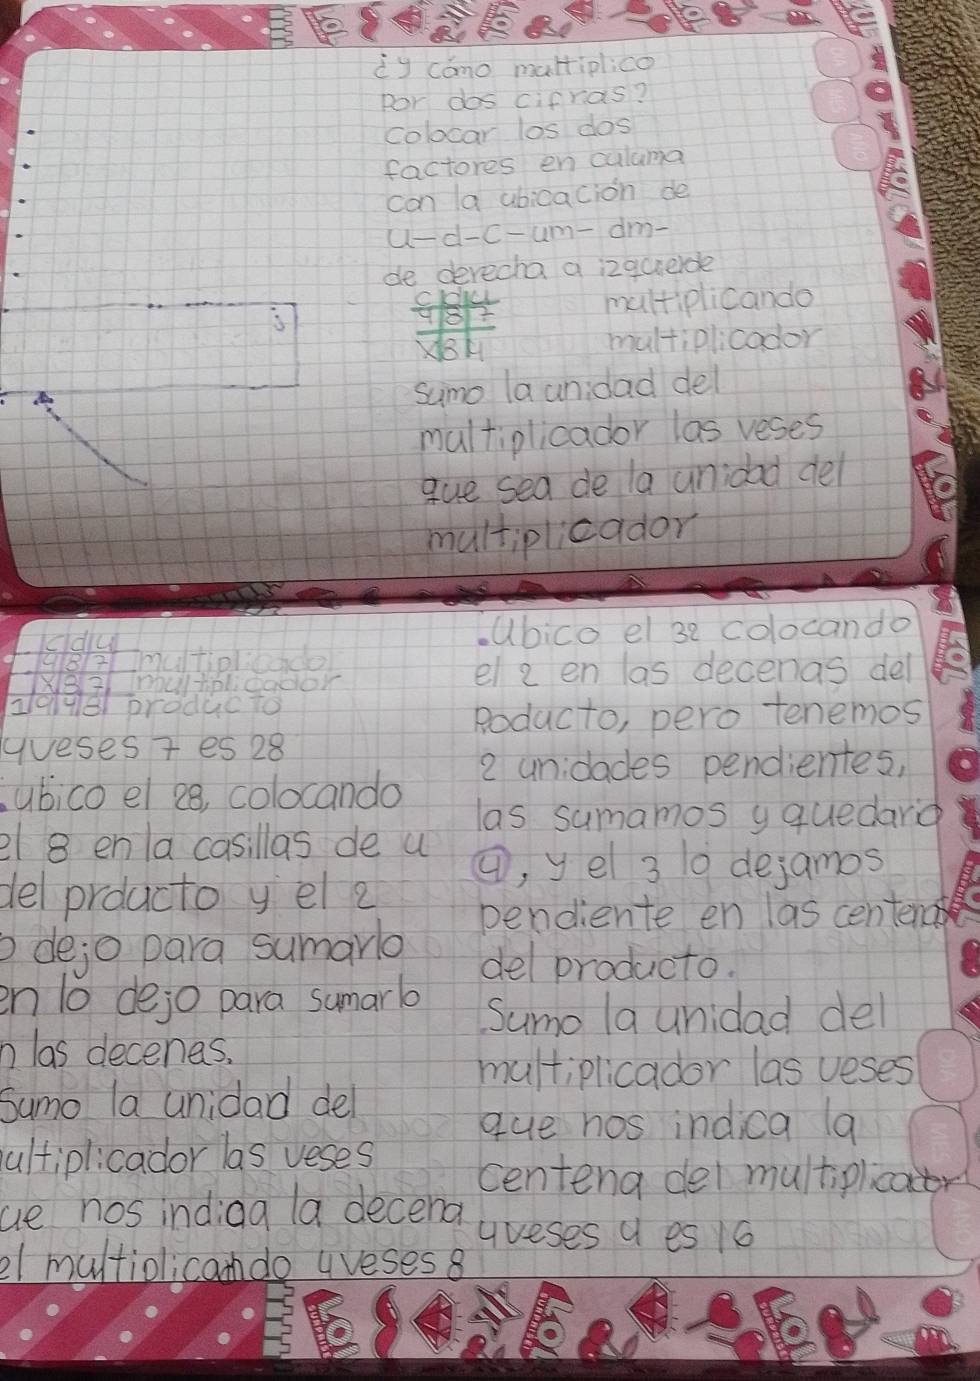 ¿y cómo multiplico
por dos cifras?
colocar los dos
factores en culuma
con la ubicación de
u-d-c-um- dm-
de derecha a izquierde
c d u
4 8 7 multiplicando
x 3 4 multiplicador
sumo la unidad del
multiplicador las veses
que sea de la unidad del
multiplicador
c d u
4 8 7 multiplicado
x 3 multiplicador
1 9 4 8 producto
4veses 7 es 28
.ubico el 28, colocando
el 8 en la casillas de u
del prducto y el 2
o dejo para sumarlo
en lo dejo para sumarlo
n las decenes.
Sumo la unidad del
ultiplicador las veses
ue nos indica la decena
el multiplicando 4veses 8
.ubico el 32 colocando
el 2 en las decenas del
Poducto, pero tenemos
2 unidades pendientes,
las sumamos y quedaria
4, y el 3 lo dejamos
pendiente en las centenas
del producto.
Sumo la unidad del
multiplicador las veses
que nos indica la
centena del multiplicador
4veses 4 es 16
LOL
SURPRISE!
DIA
MES
AÑO